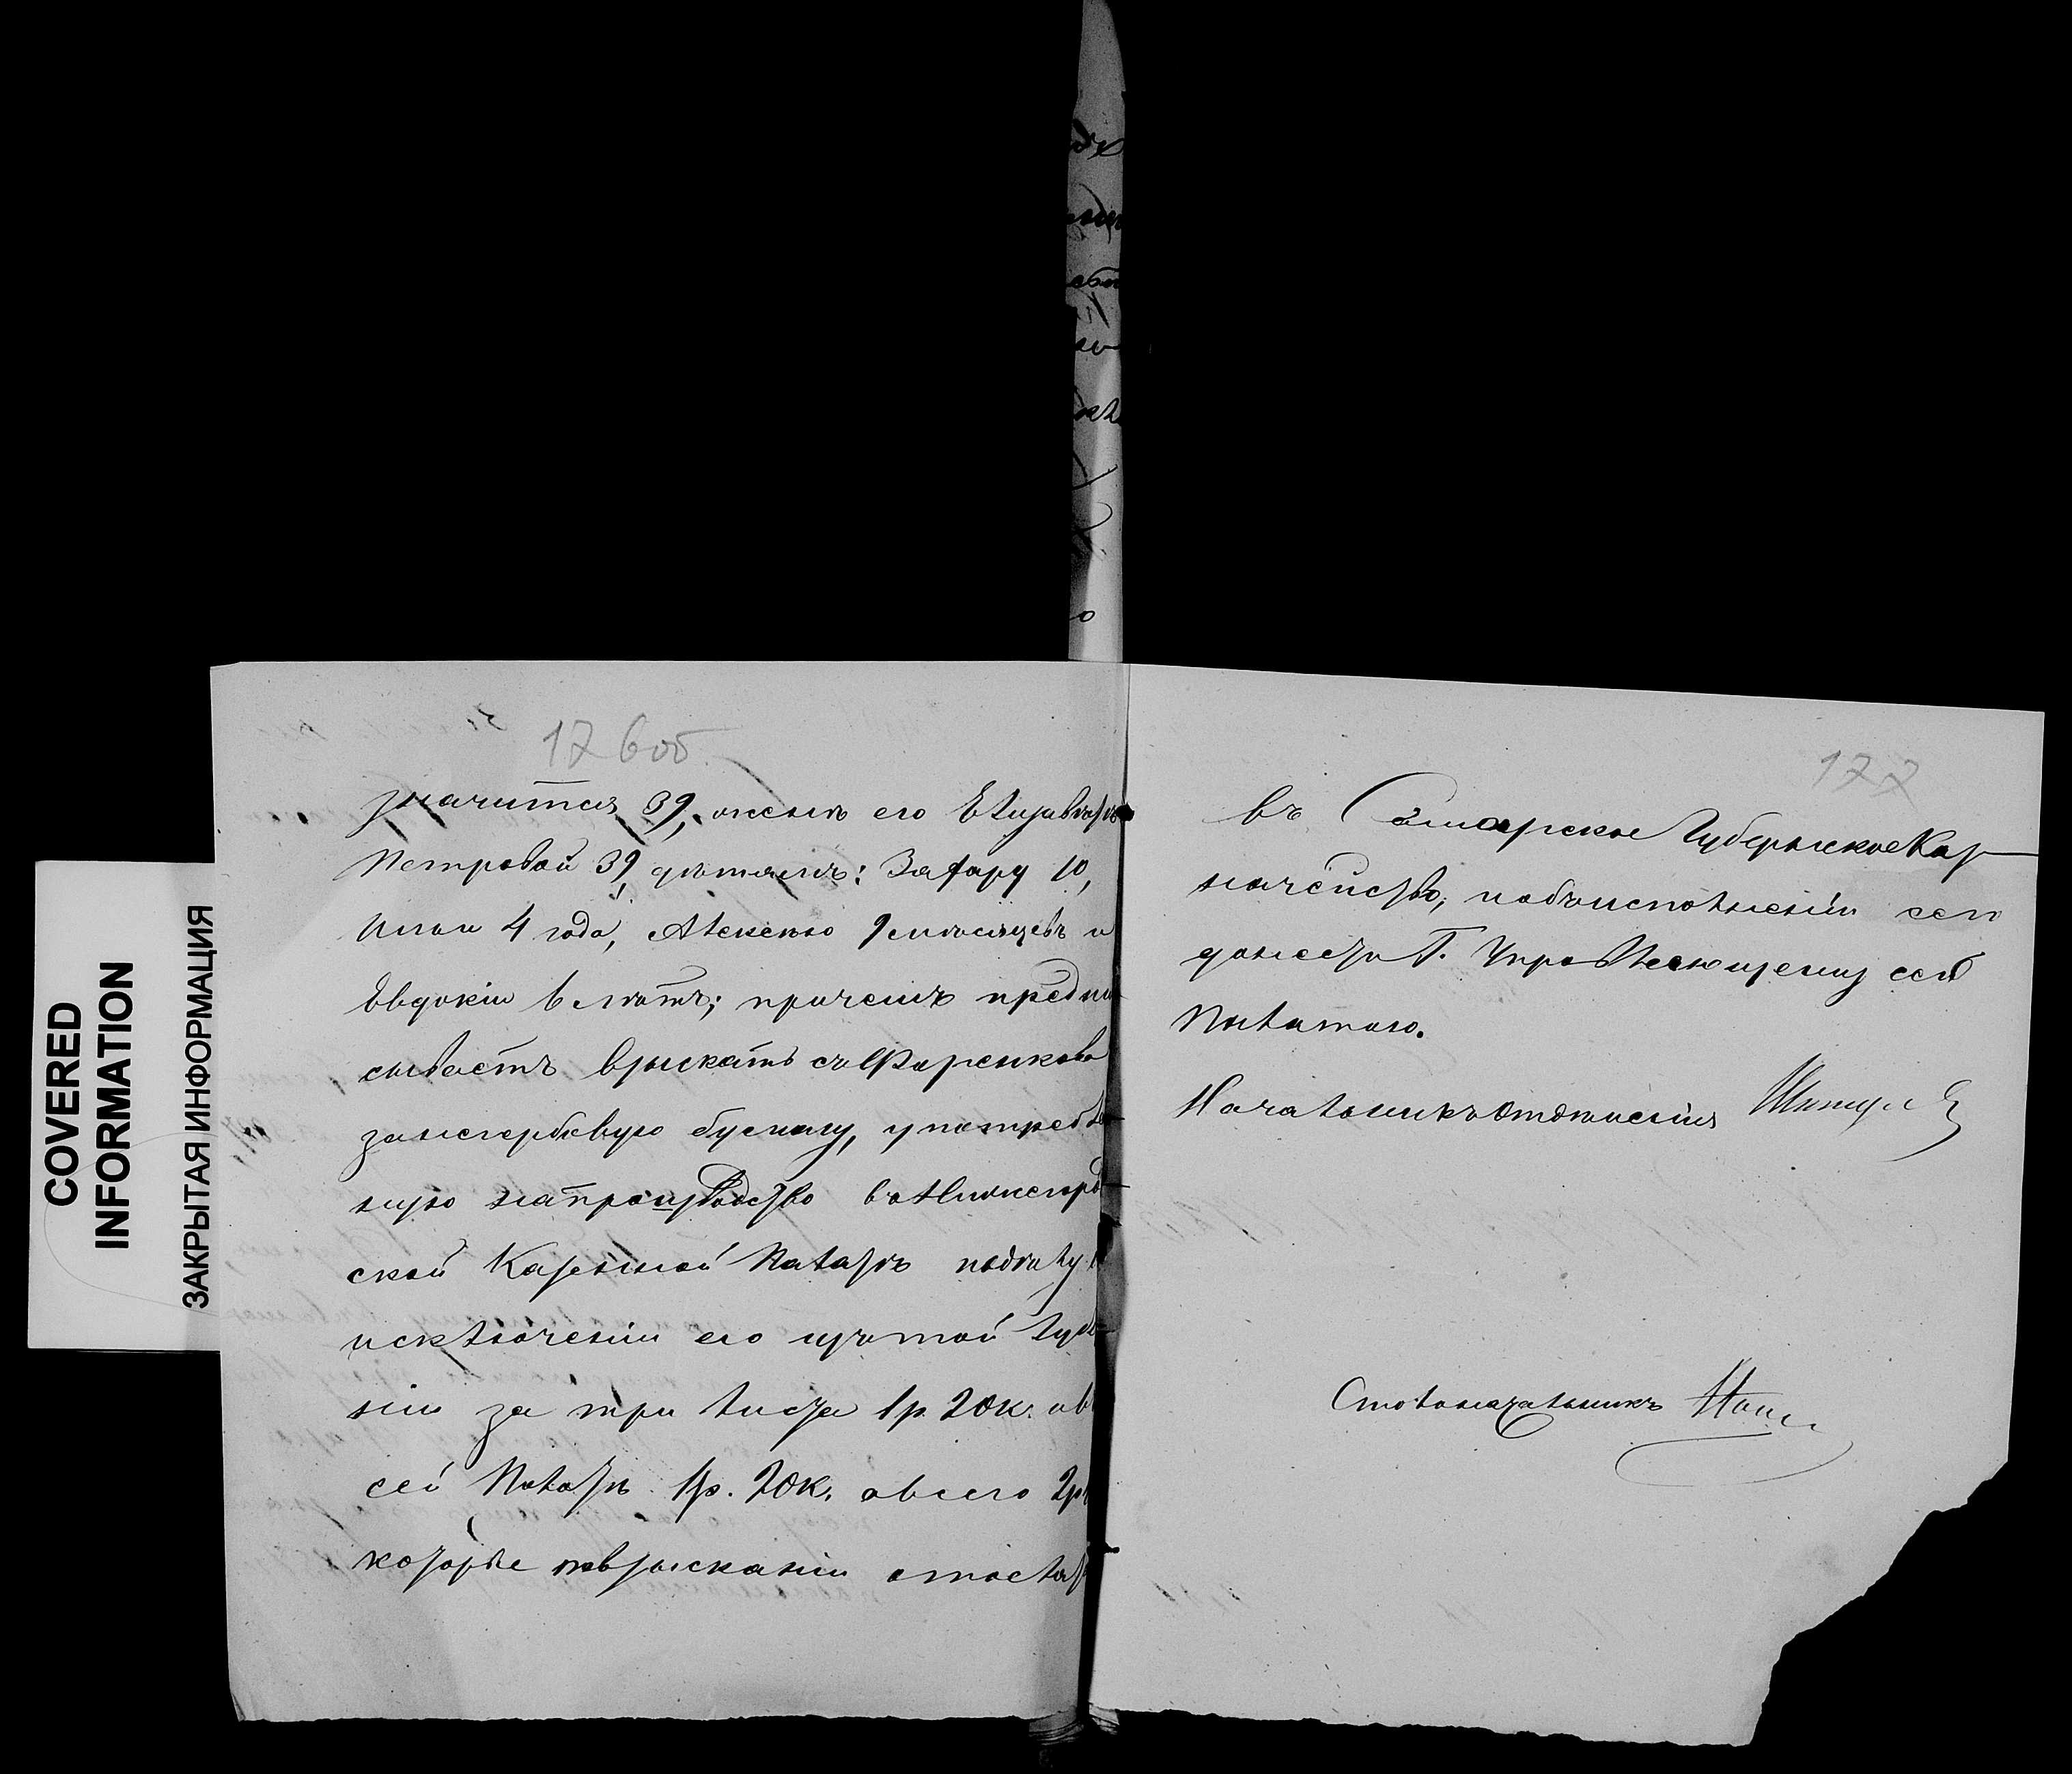 COVERED
INFORMATION
ЗАКРЫТАЯ ИНФОРМАЦИЯ
176об
значится 39, женѣ его Елизаветѣ
Петровой 39, дѣтямъ: Захару 10,
Илiи 4 года, Алексею 9 мѣсяцевъ и
Евдокіи 6 лѣтъ; причемъ предпи
сываетъ взыскать съ
за гербовую бумагу, употреблен
ную на производство въ
ской Казенной Палатѣ по дѣлу
исключеніи его изъ той Губер
ніи за три листа 1 р. 20 к. и въ
сей Палатѣ 1 р. 20 к. а всего 2 р
которые по взысканіи отослать
177
въ Самарское Губернское Каз
начейство, и объ исполненіи сего
донести Г. Управляющему сей
Палатою.
Начальникъ Отдѣленія
Столоначальникъ